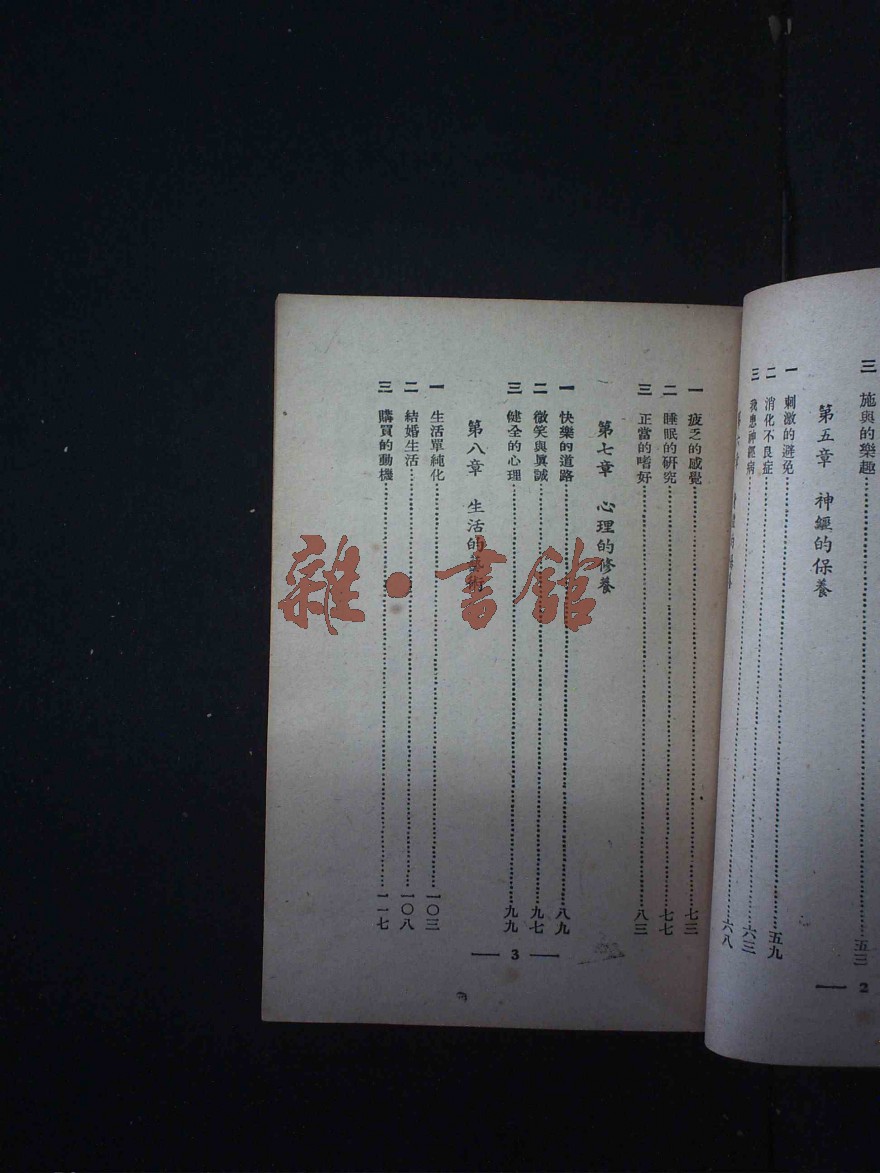 三 施與的樂趣……五三
第五章 神經的保養
一 刺激的避免……五九
二 消化不良症……六三
三 我患神經病……六八
— 2
一 疲乏的感覺……七三
二 睡眠的研究……七七
三 正當的嗜好……八三
第七章 心理的修養
一 快樂的道路……八九
二 微笑與眞誠……九七
三 健全的心理……九九
第八章 生活的藝術
一 生活單純化……一〇三
二 結婚生活……一〇八
三 購買的動機……一一七
— 3 —
雜·書館